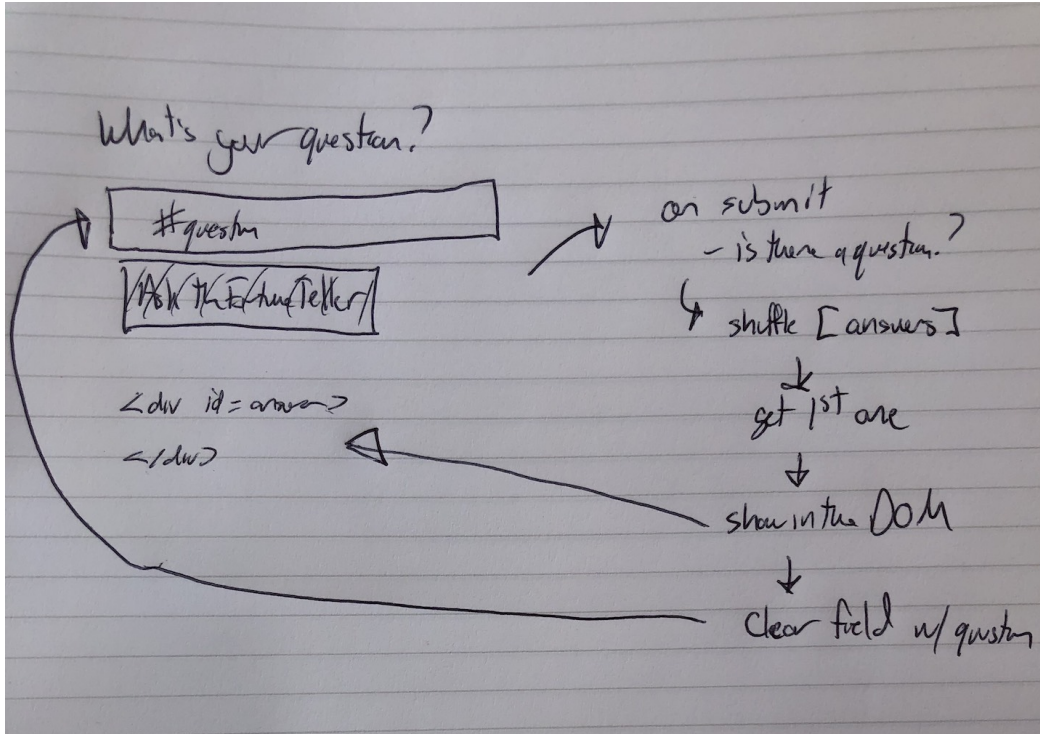 What's your question?
#question
Ask the Fortune Teller
<div id=answer>
</div>
on submit
- is there a question?
shuffle [answers]
get 1st one
show in the DOM
Clear field w/ question